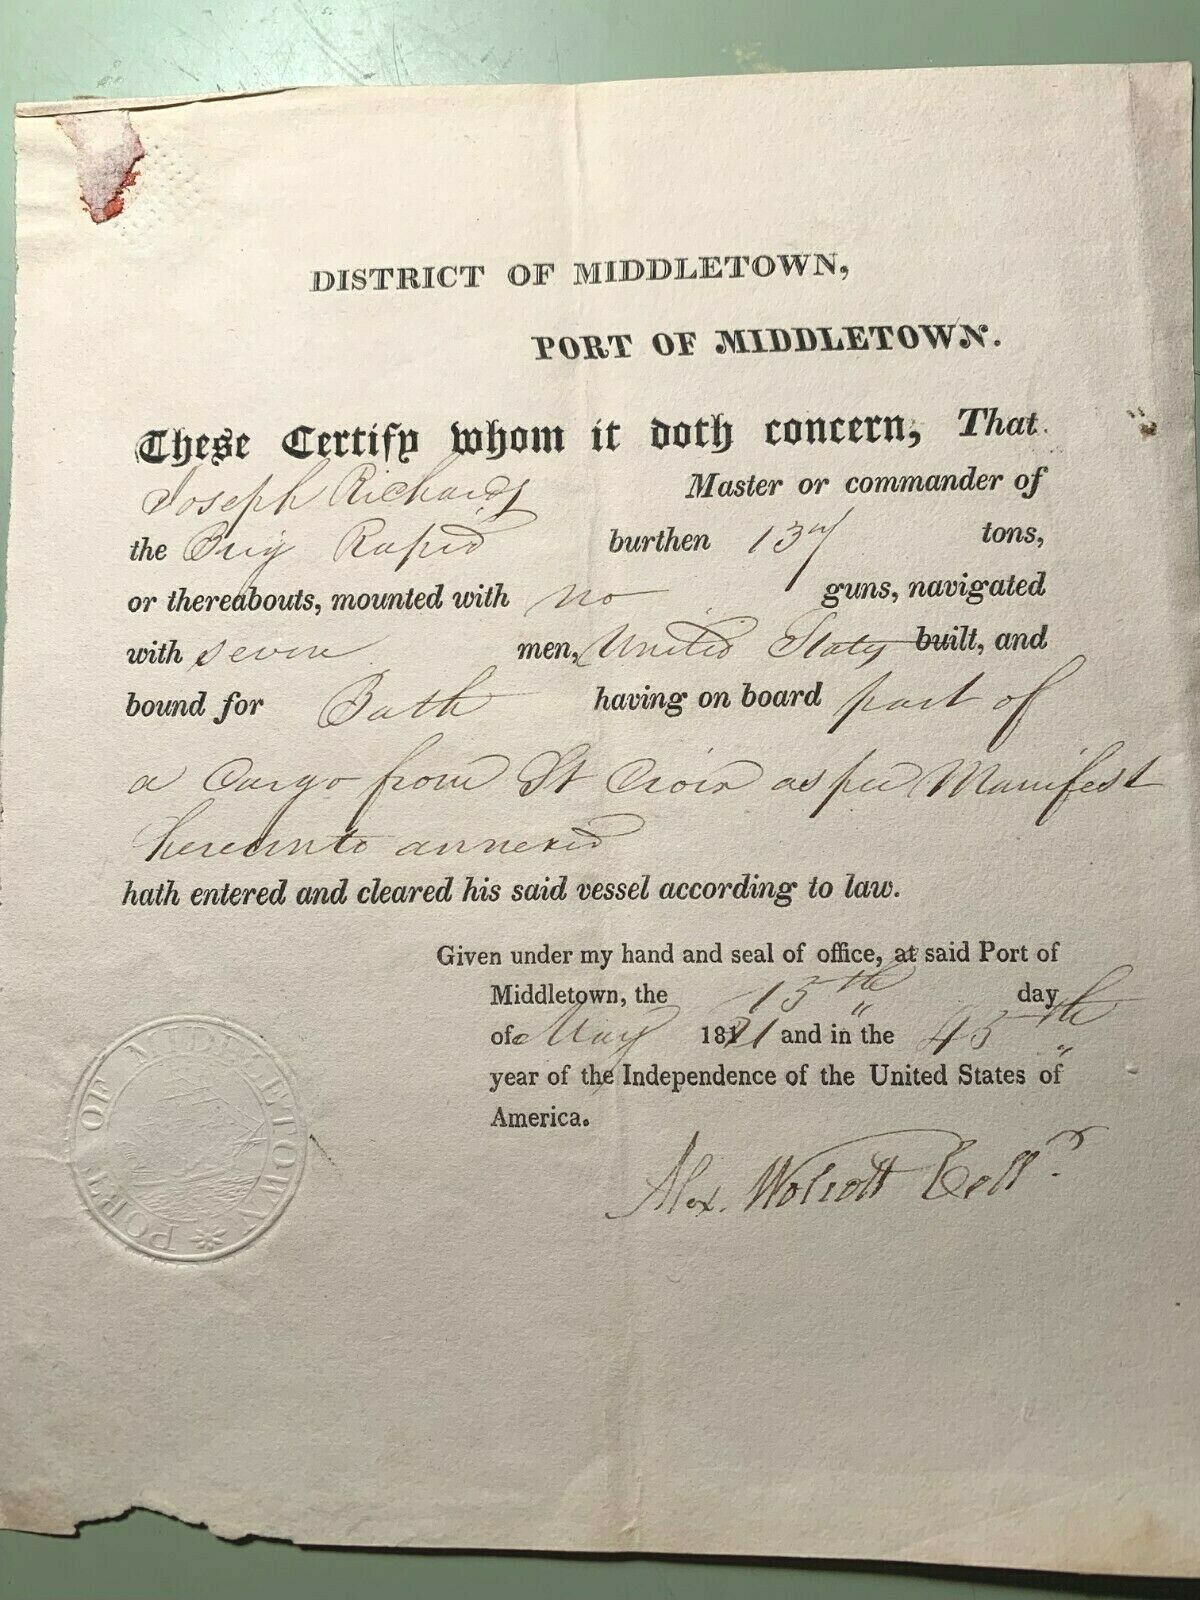 DISTRICT OF MIDDLETOWN,
PORT OF MIDDLETOWN.
These Certify whom it doth concern, That
Joseph Richards Master or commander of
the Brig Rapid burthen 137 tons,
or thereabouts, mounted with no guns, navigated
with seven men, United States built, and
bound for Bath having on board part of
a Cargo from St Croix as per Manifest
hereunto annexed
hath entered and cleared his said vessel according to law.
Given under my hand and seal of office, at said Port of
Middletown, the 15th day
of May 1821 and in the 45th
year of the Independence of the United States of
America.
Alex. Wolcott Collr.
PORT OF MIDDLETOWN